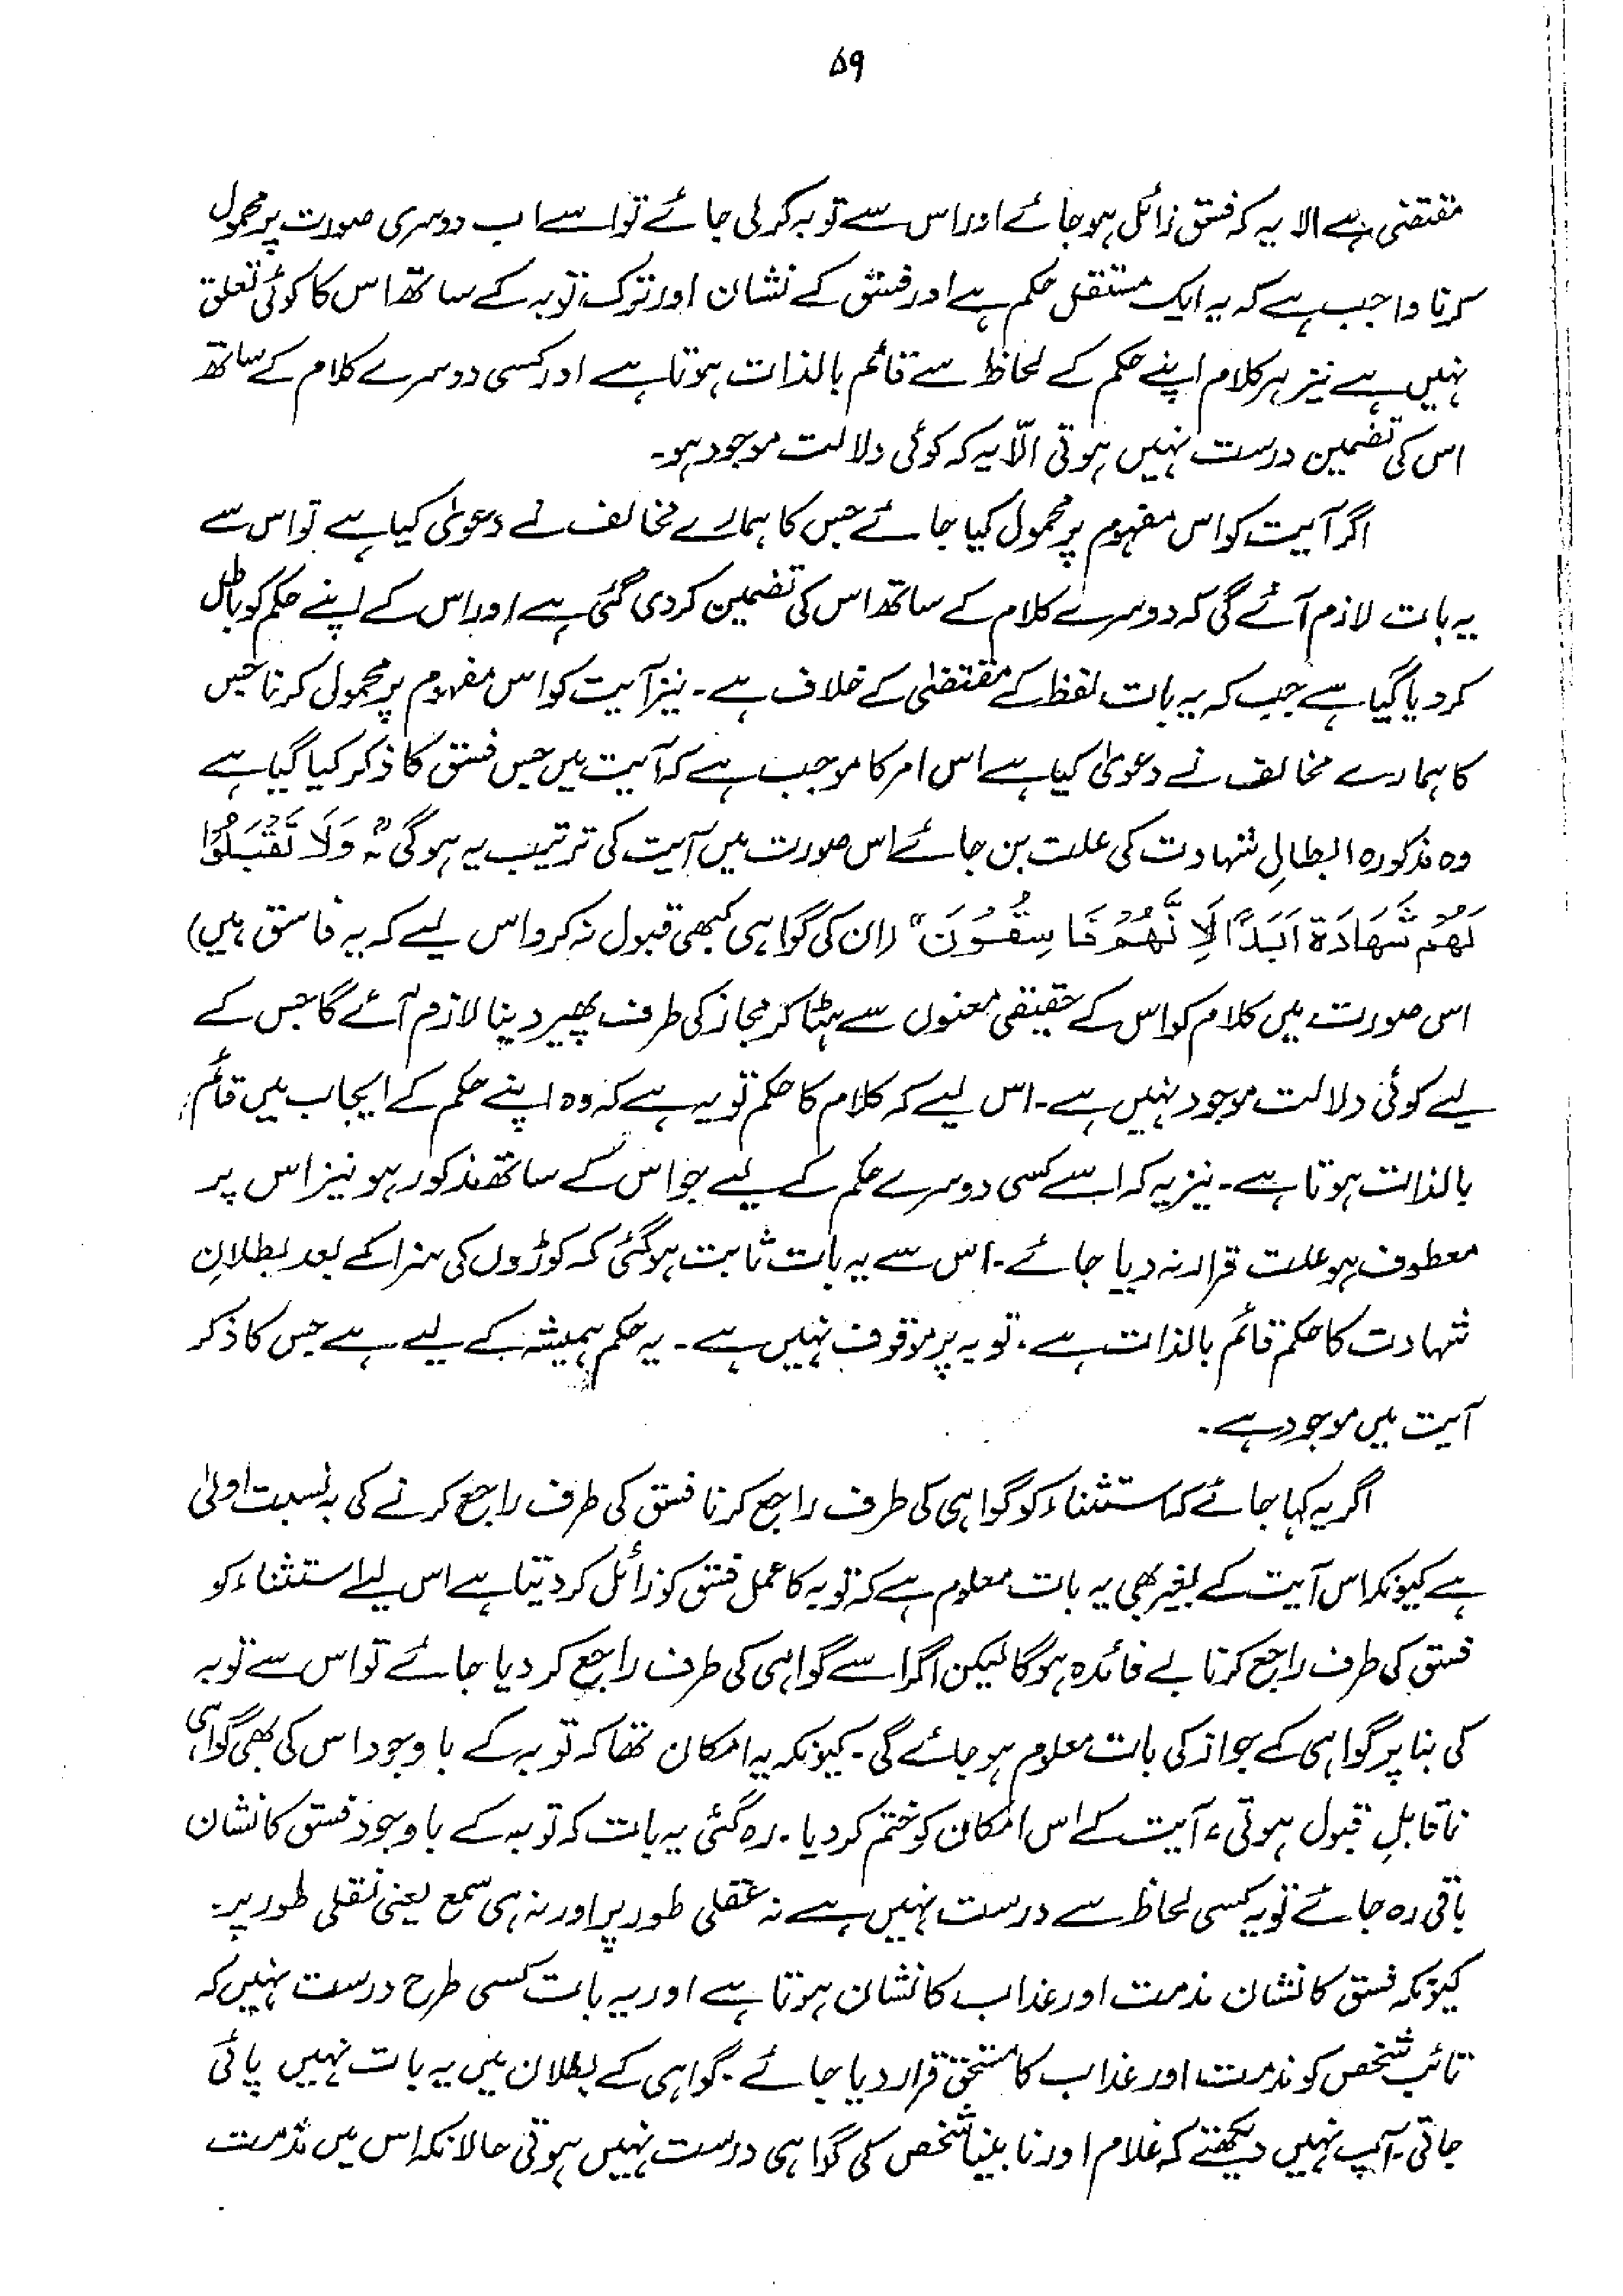 ۵۹
مقتضی ہے الا یہ کہ فسق زائل ہو جائے اور اس سے توبہ کر لی جائے تو اسے اب دوسری صورت پر محمول
کرنا واجب ہے کہ یہ ایک مستقل حکم ہے اور فسق کے نشان اور ترک توبہ کے ساتھ اس کا کوئی تعلق
نہیں ہے نیز ہر کلام اپنے حکم کے لحاظ سے قائم بالذات ہوتا ہے اور کسی دوسرے کلام کے ساتھ
اس کی تضمین درست نہیں ہوتی الّا یہ کہ کوئی دلالت موجود ہو۔
اگر آیت کو اس مفہوم پر محمول کیا جائے جس کا ہمارے مخالف نے دعویٰ کیا ہے تو اس سے
یہ بات لازم آئے گی کہ دوسرے کلام کے ساتھ اس کی تضمین کر دی گئی ہے اور اس کے اپنے حکم کو باطل
کر دیا گیا ہے جب کہ یہ بات لفظ کے مقتضیٰ کے خلاف ہے۔ نیز آیت کو اس مفہوم پر محمول کرنا جس
کا ہمارے مخالف نے دعویٰ کیا ہے اس امر کا موجب ہے کہ آیت میں جس فسق کا ذکر کیا گیا ہے
وہ مذکورہ ابطالِ شہادت کی علت بن جائے اس صورت میں آیت کی ترتیب یہ ہو گی "وَلَا تَقْبَلُوْا
لَهُمْ شَهَادَةً اَبَدًا لِاَ نَّهُمْ فَا سِقُوْنَ" (ان کی گواہی کبھی قبول نہ کرو اس لیے کہ یہ فاسق ہیں)
اس صورت میں کلام کو اس کے حقیقی معنوں سے ہٹا کر مجاز کی طرف پھیر دینا لازم آئے گا جس کے
لیے کوئی دلالت موجود نہیں ہے۔ اس لیے کہ کلام کا حکم تو یہ ہے کہ وہ اپنے حکم کے ایجاب میں قائم
بالذات ہوتا ہے۔ نیز یہ کہ اسے کسی دوسرے حکم کے لیے جو اس کے ساتھ مذکور ہو نیز اس پر
معطوف ہو علت قرار نہ دیا جائے۔ اس سے یہ بات ثابت ہو گئی کہ کوڑوں کی سزا کے بعد بطلانِ
شہادت کا حکم قائم بالذات ہے، توبہ پر موقوف نہیں ہے۔ یہ حکم ہمیشہ کے لیے ہے جس کا ذکر
آیت میں موجود ہے۔
اگر یہ کہا جائے کہ استثناء کو گواہی کی طرف راجع کرنا فسق کی طرف راجع کرنے کی بہ نسبت اولیٰ
ہے کیونکہ اس آیت کے بغیر بھی یہ بات معلوم ہے کہ توبہ کا عمل فسق کو زائل کر دیتا ہے اس لیے استثناء کو
فسق کی طرف راجع کرنا بے فائدہ ہو گا لیکن اگر اسے گواہی کی طرف راجع کر دیا جائے تو اس سے توبہ
کی بنا پر گواہی کے جواز کی بات معلوم ہو جائے گی۔ کیونکہ یہ امکان تھا کہ توبہ کے باوجود اس کی بھی گواہی
ناقابلِ قبول ہوتی، آیت کے اس امکان کو ختم کر دیا۔ رہ گئی یہ بات کہ توبہ کے باوجود فسق کا نشان
باقی رہ جائے تو یہ کسی لحاظ سے درست نہیں ہے نہ عقلی طور پر اور نہ ہی سمع یعنی نقلی طور پر۔
کیونکہ فسق کا نشان مذمت اور عذاب کا نشان ہوتا ہے اور یہ بات کسی طرح درست نہیں کہ
تائب شخص کو مذمت اور عذاب کا مستحق قرار دیا جائے۔ گواہی کے بطلان میں یہ بات نہیں پائی
جاتی۔ آپ نہیں دیکھتے کہ غلام اور نابینا شخص کی گواہی درست نہیں ہوتی حالانکہ اس میں مذمت